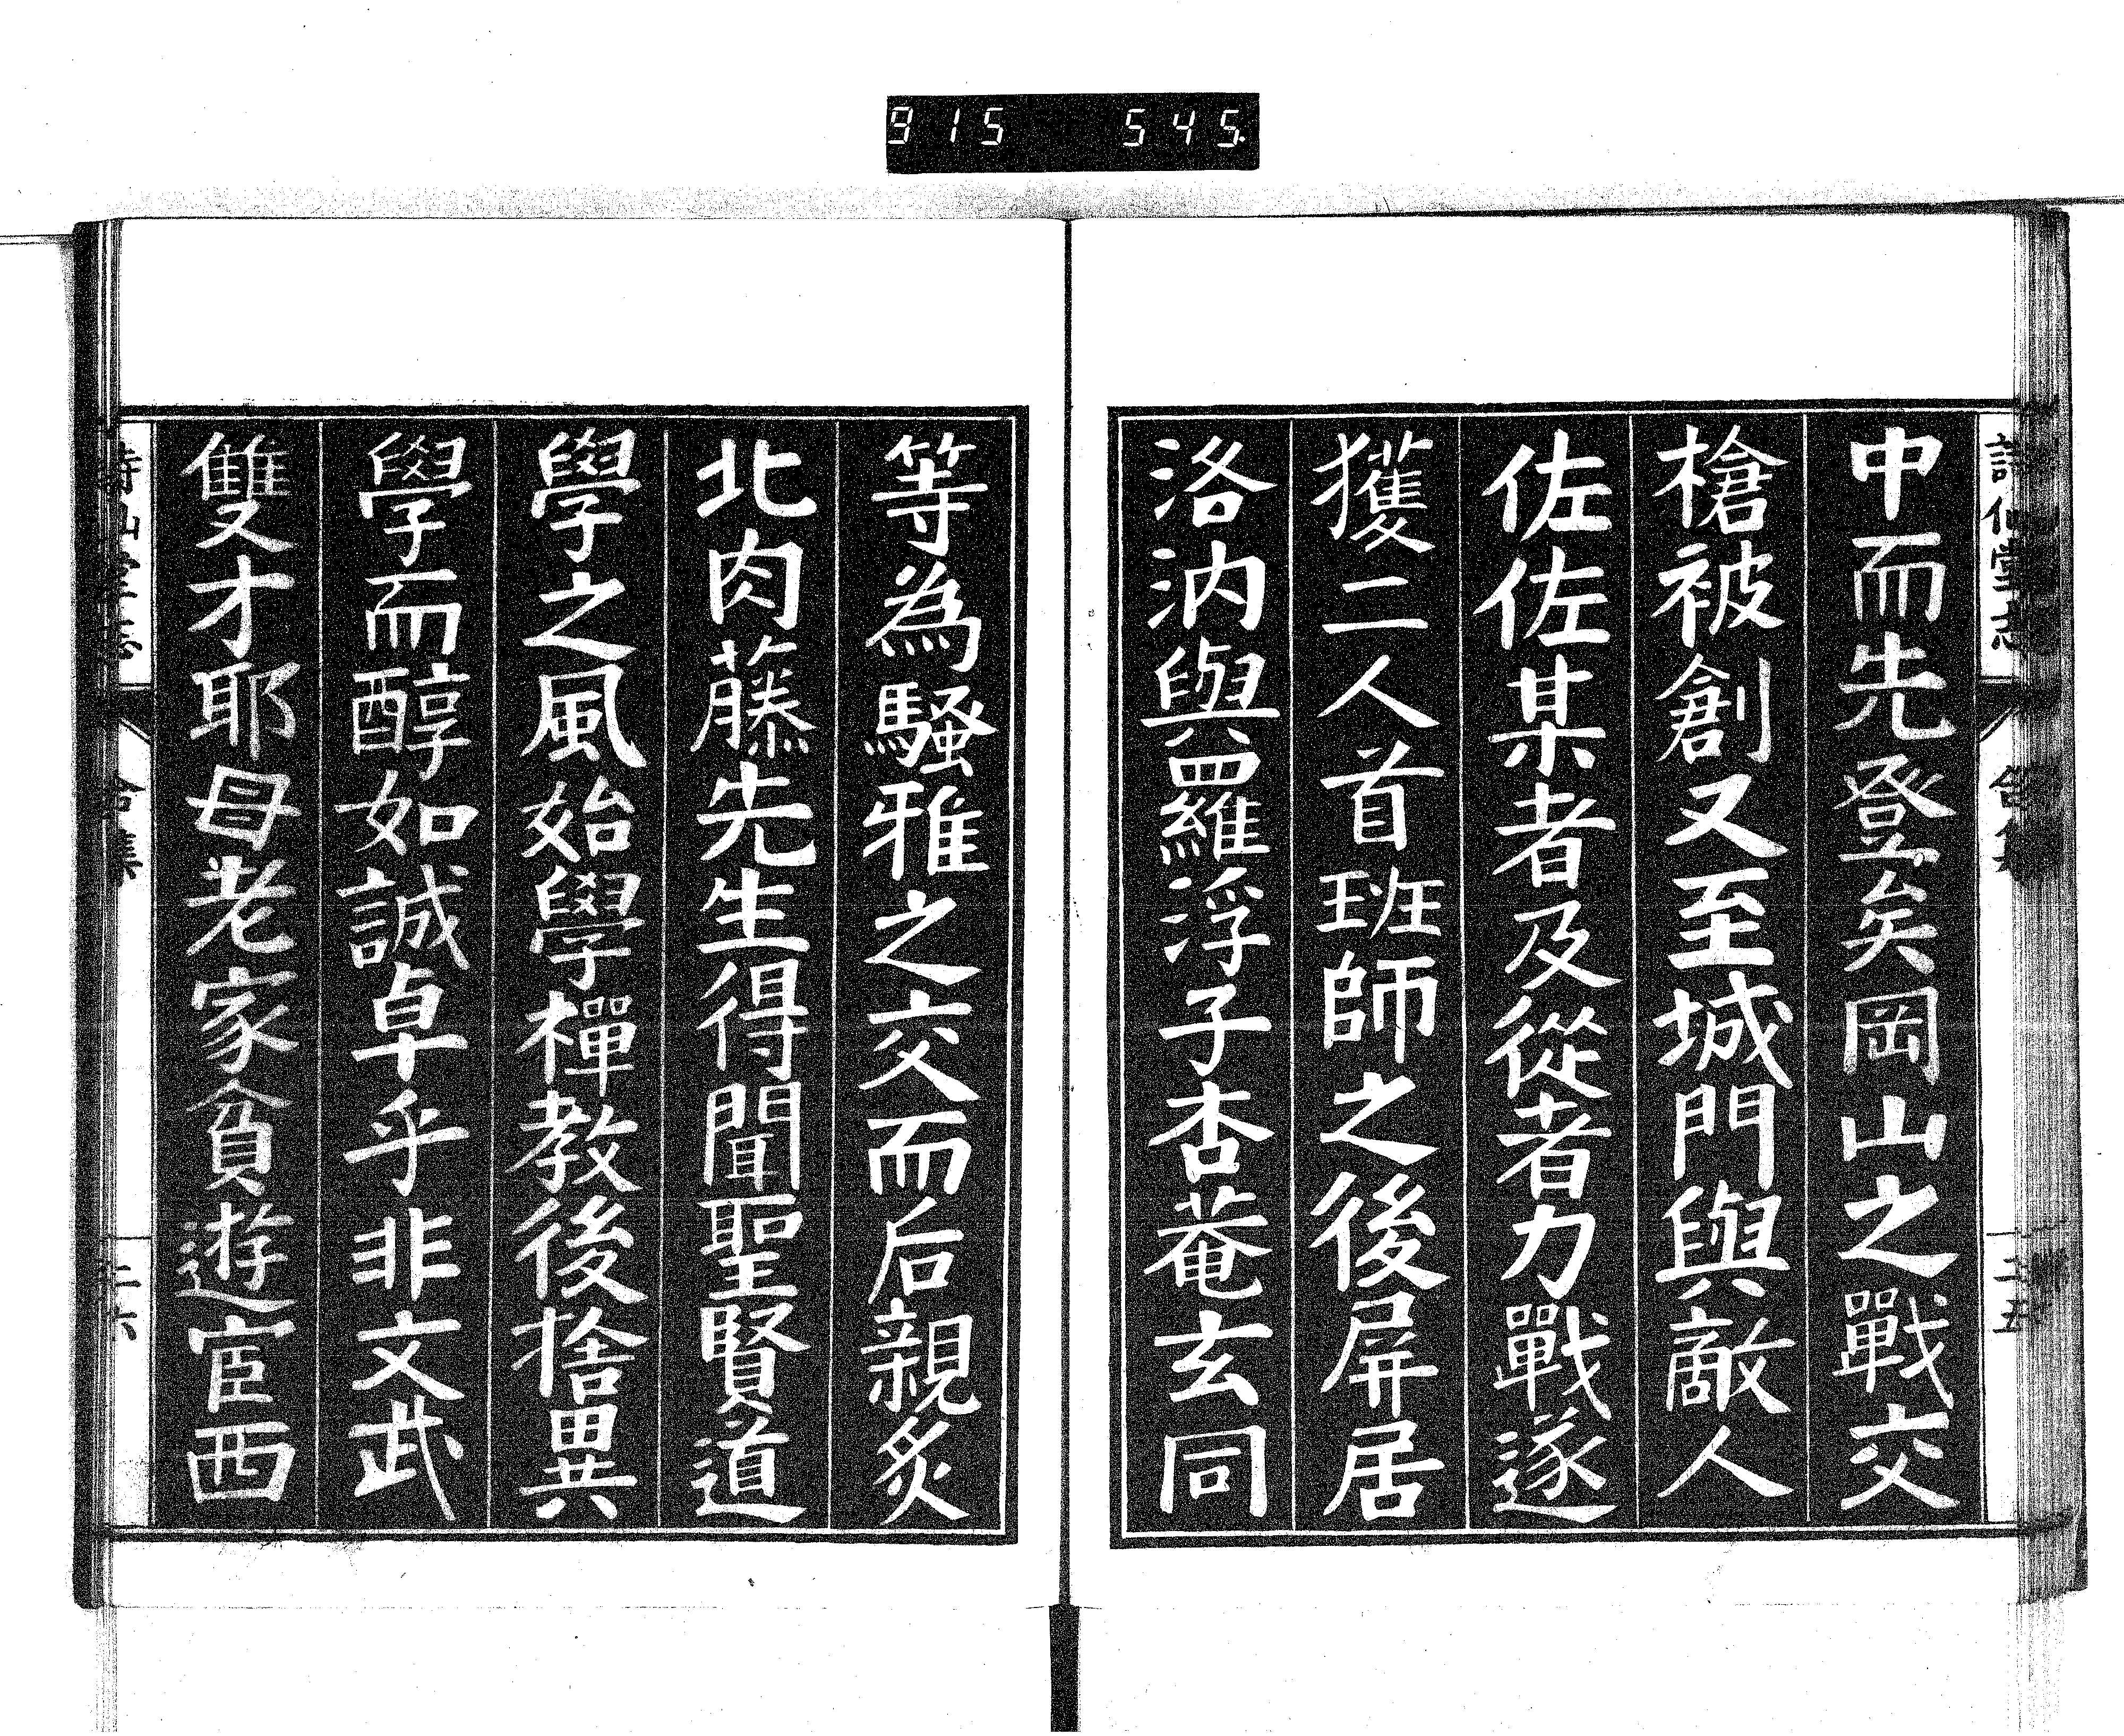 915 545
中而先登矣岡山之戰交
槍被創又至城門與敵人
佐佐某者及從者力戰遂
獲二人首班師之後屏居
洛汭與羅浮子杏菴玄同
等為騷雅之交而后親炙
北肉藤先生得聞聖賢道
學之風始學禪教後捨異
學而醇如誠卓乎非文武
雙才耶母老家貧遊宦西